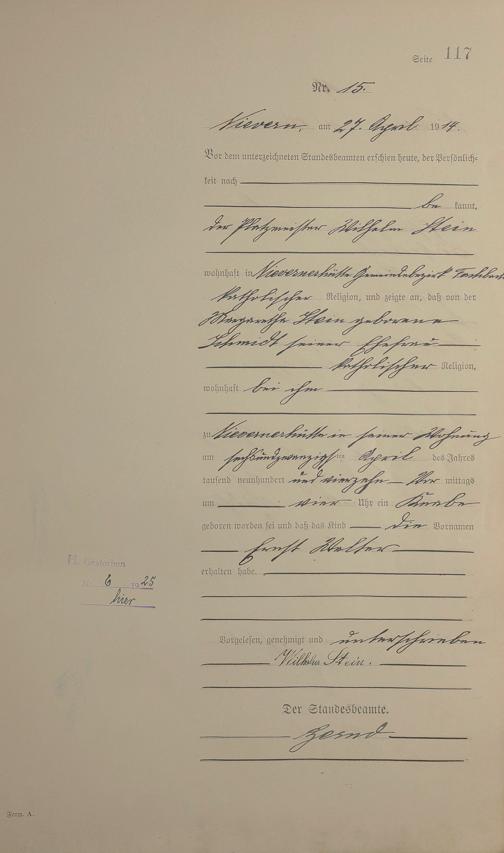 Seite 117
Nr. 15.
Nievern, am 27. April 1914.
Vor dem unterzeichneten Standesbeamten erschien heute, der Persönlich-
keit nach
be kannt,
der Platzmeister Wilhelm Stein
wohnhaft in Nievernerhütte Gemeindebezirk Fachbach
katholischer Religion, und zeigte an, daß von der
Margaretha Stein geborene
Schmidt seiner Ehefrau
katholischer Religion,
wohnhaft bei ihm
zu Nievernerhütte in seiner Wohnung
am sechsundzwanzigsten April des Jahres
tausend neunhundert und vierzehn Vor mittags
um vier Uhr ein Knabe
geboren worden sei und daß das Kind die Vornamen
Ernst Walter
erhalten habe.
Gestorben
Nr. 6 1925
hier
Vorgelesen, genehmigt und unterschrieben
Wilhelm Stein.
Der Standesbeamte.
Form. A.